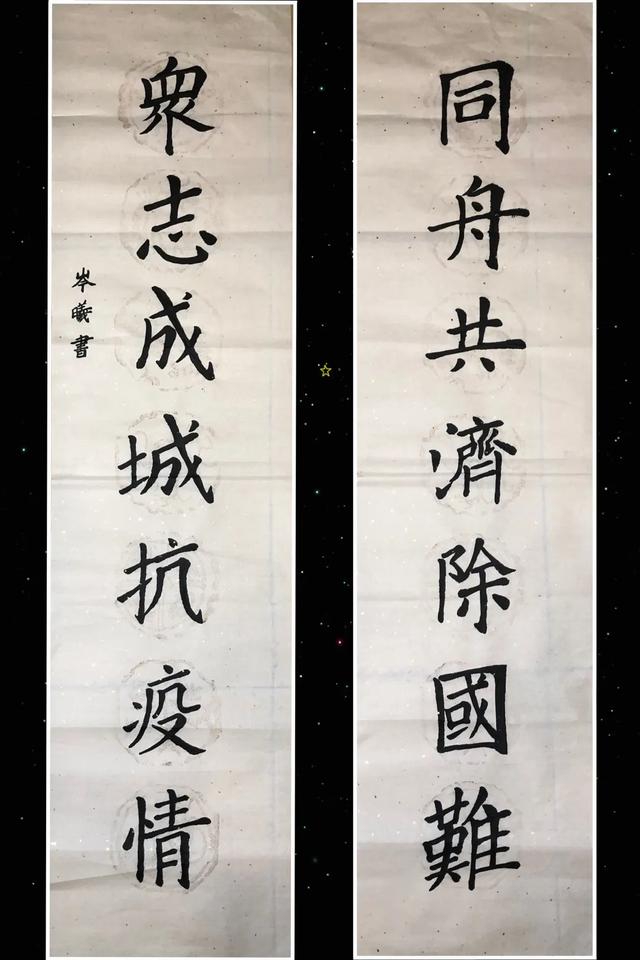 同舟共濟除國難
衆志成城抗疫情
岑曦書